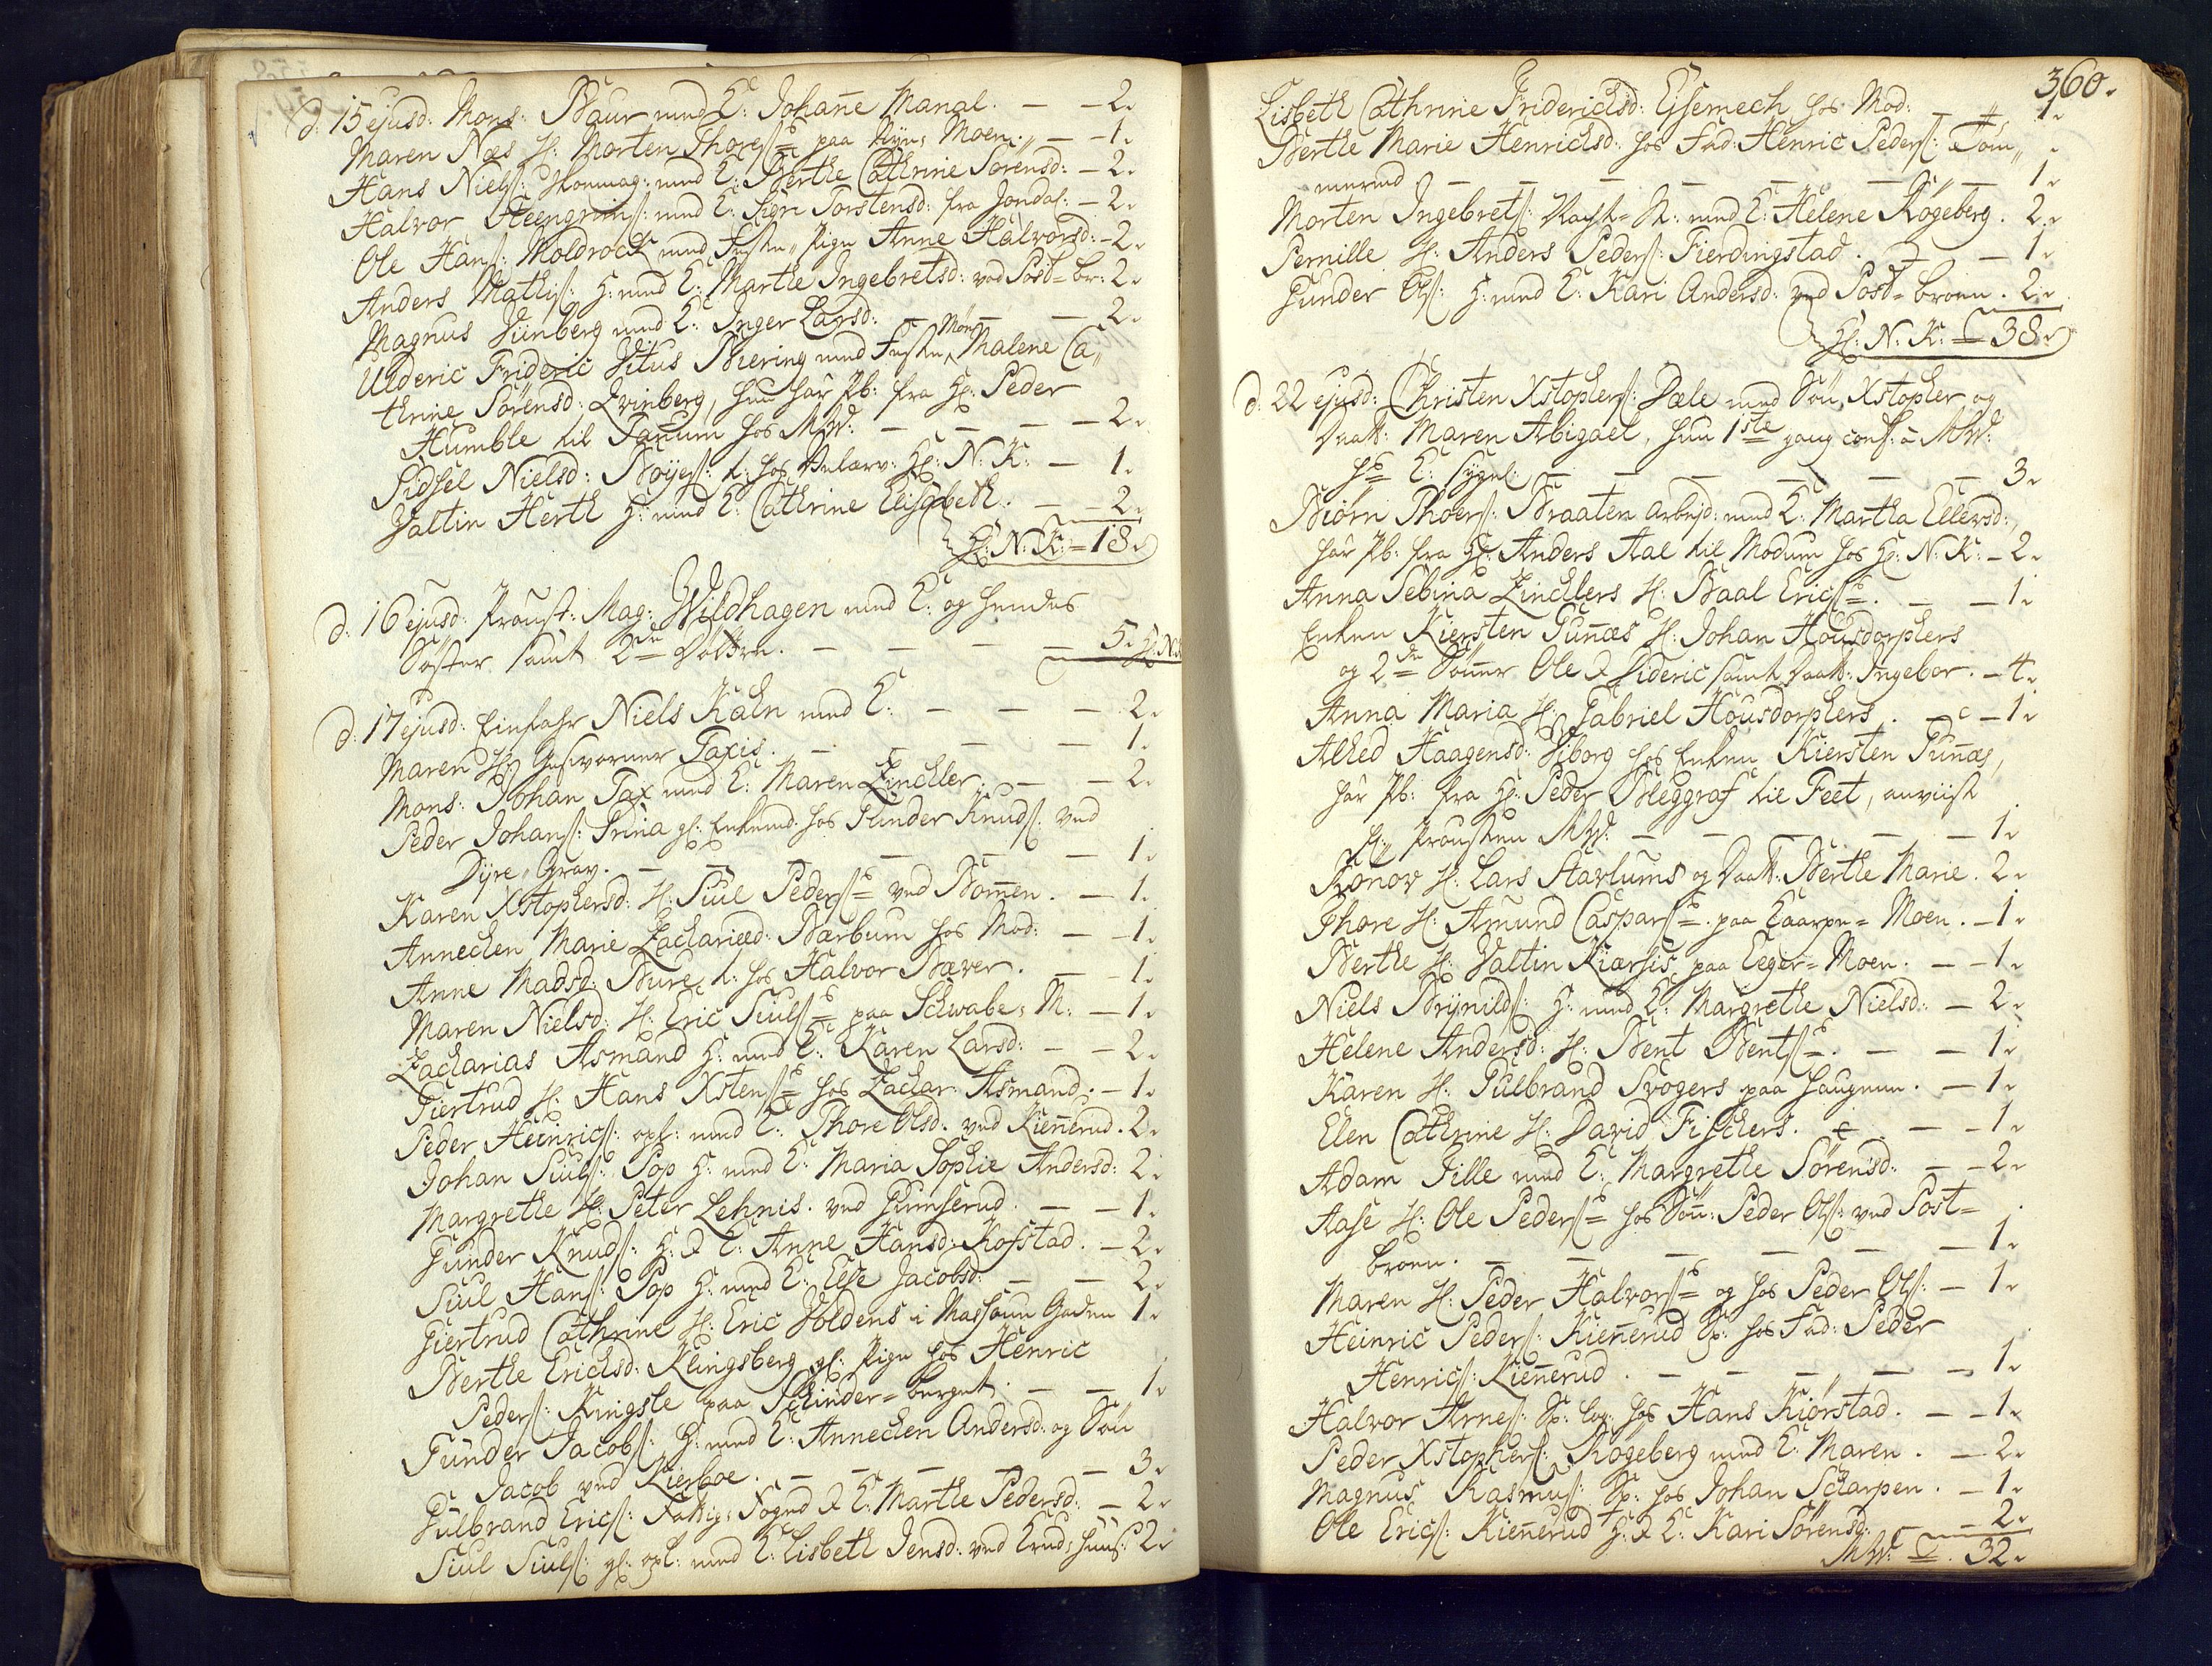 d. 15 ejusd: Mons: Baur med E: Johan̄e Manal. — — 2.
Maren Næs H: Morten Thores: paa Nye, Moen. — — 1.
Hans Niels: med E: Berthe Cathrine Sørensd: — 2.
Halvor Steengrims: med E: Sigri Torstensd: fra Jondal: — 2.
Ole Hans: Moldrock med Festen, Pige Anne Halvorsd: — 2.
Anders Mathis: H: med E: Marthe Ingebretsd: ved Post-br: 2.
Magnus Vinberg med E: Inger Larsd: — — — 2.
Ulderic Frideric Vitus Biering med Festen, Møe Malene Ca„
thrine Sørensd: Qvinberg, hun har Pb: fra Hr: Peder
Humble til Tanum hos MW: — — — — 2.
Sidsel Nielsd: Bøyes: L: hos Hr: N: K: — 1.
Valtin Herth H: med E: Cathrine Elisabeth. — — 2.
Hr: N: K: = 18.
d. 16 ejusd: Proust: Mag: Wildhagen med E: og hendes
Søster samt 2de Døttre. — — — — 5. H: N: K:
d. 17 ejusd: Einfahr Niels Kaln med E: — — — 2.
Maren H: Gesworner Taxis. — — — — 1.
Mons: Johan Tax med E: Maren Zinckler. — — 2.
Peder Johans: Prina gl: Enkemd. hos Gunder Knuds: ved
Dyre, Grav. — — — — — 1.
Karen Xstophersd: H: Siul Peders: ved Bom̄en. — 1.
Annechen Marie Zachariæd: Bærbum hos Mod: — — 1.
Anne Madsd: Bure, L: hos Halvor Bæver. — — 1.
Maren Nielsd: H: Eric Siuls: paa Schwabe, M: — 1.
Zacharias Asmand H: med E: Karen Larsd: — — 2.
Giertrud H: Hans Xstens: hos Zachar: Asmand. — 1.
Peder Heinrics: opl: med E: Thore Olsd. ved Kien̄erud. 2.
Johan Siuls: Pop H: med E: Maria Sophie Andersd: 2.
Margrethe H: Peter Lehnis. ved Grimserud. — — 1.
Gunder Knuds: H: & E: Anne Hansd: Kofstad. — 2.
Siul Hans: Pop H: med E: Else Jacobsd: — — 2.
Giertrud Cathrine H: Eric Voldens i Gaden 1.
Berthe Erichsd: Klingsberg gl: Pige hos Henric
Peders: Kingsle paa Schinder-berget. — — 1.
Gunder Jacobs: H: med E: Annechen Andersd: og Søn
Jacob ved Kierboe. — — — — 3.
Gulbrand Erics: Fattig, Foged & E: Marthe Pedersd: — 2.
Siul Siuls: gl: opl: med E: Lisbeth Jensd: ved huus: 2.
360.
Lisbeth Cathrine Friderichsd: Eisernech hos Mod: — — 1.
Berthe Marie Henrichsd: hos Fad: Henric Peders: Tøm„
mermd — — — — — — 1.
Morten Ingebrets: med E: Helene Røgeberg. 2.
Pernille H: Anders Peders: Fierdingstad. — — 1.
Gunder Ols: H: med E: Kari Andersd: ved Post-broen. 2.
Hr: N: K: = 38.
d. 22 ejusd: Christen Xstophers: Dæle med Søn Xstopher og
Daatt: Maren Abigael, hun 1ste gang conf: à MW:
hs E: sygel: — — — — — 3.
Biørn Thoers: Braaten Arbejd: med E: Martha Ellevsd:,
har Pb: fra Hr: Anders Aal til Modum hos Hr: N: K: — 2.
Anna Sebina Zincklers H: Baal Erics: — — 1.
Enken Kiersten Gun̄æs H: Johan Housdorphers
og 2de Søn̄er Ole & Frideric samt Daatt: Ingebor. — 4.
Anna Maria H: Gabriel Housdorphers. — — 1.
Alhed Haagensd: Viborg hos Enken Kiersten Gun̄æs,
har Pb: fra Hr: Peder Bleggraf til Feet, anviist
Hr: Prousten MW: — — — — — 1.
Ronov H: Lars Stavlums og Daatt: Berthe Marie. 2.
Thore H: Amund Caspars: paa Moen. — 1.
Berthe H: Valtin Kiærsis, paa Eeger-Moen. — — 1.
Niels Brynilds: H: med E: Margrethe Nielsd: — 2.
Helene Andersd: H: Bent Bents: — — 1.
Karen H: Gulbrand Svogers paa Haugenen. — 1.
Elen Cathrine H: David Fischers. — — 1.
Adam Tille med E: Margrethe Sørensd: — — 2.
Aase H: Ole Peders: hos Søn: Peder Ols: ved Post-
broen. — — — — — 1.
Maren H: Peder Halvors: og hos Peder Ols: — 1.
Heinric Peders: Kien̄erud Sp: hos Fad: Peder
Henrics: Kien̄erud. — — — — — 1.
Halvor Arnes: Sp: log: hos Hans Kiørstad. — — 1.
Peder Xstophers: Røgeberg med E: Maren. — 2.
Magnus Rasmus: Sp: hos Johan Scharpen. — 1.
Ole Erics: Kien̄erud H: & E: Kari Sørensd: — 2.
MW: = 32.